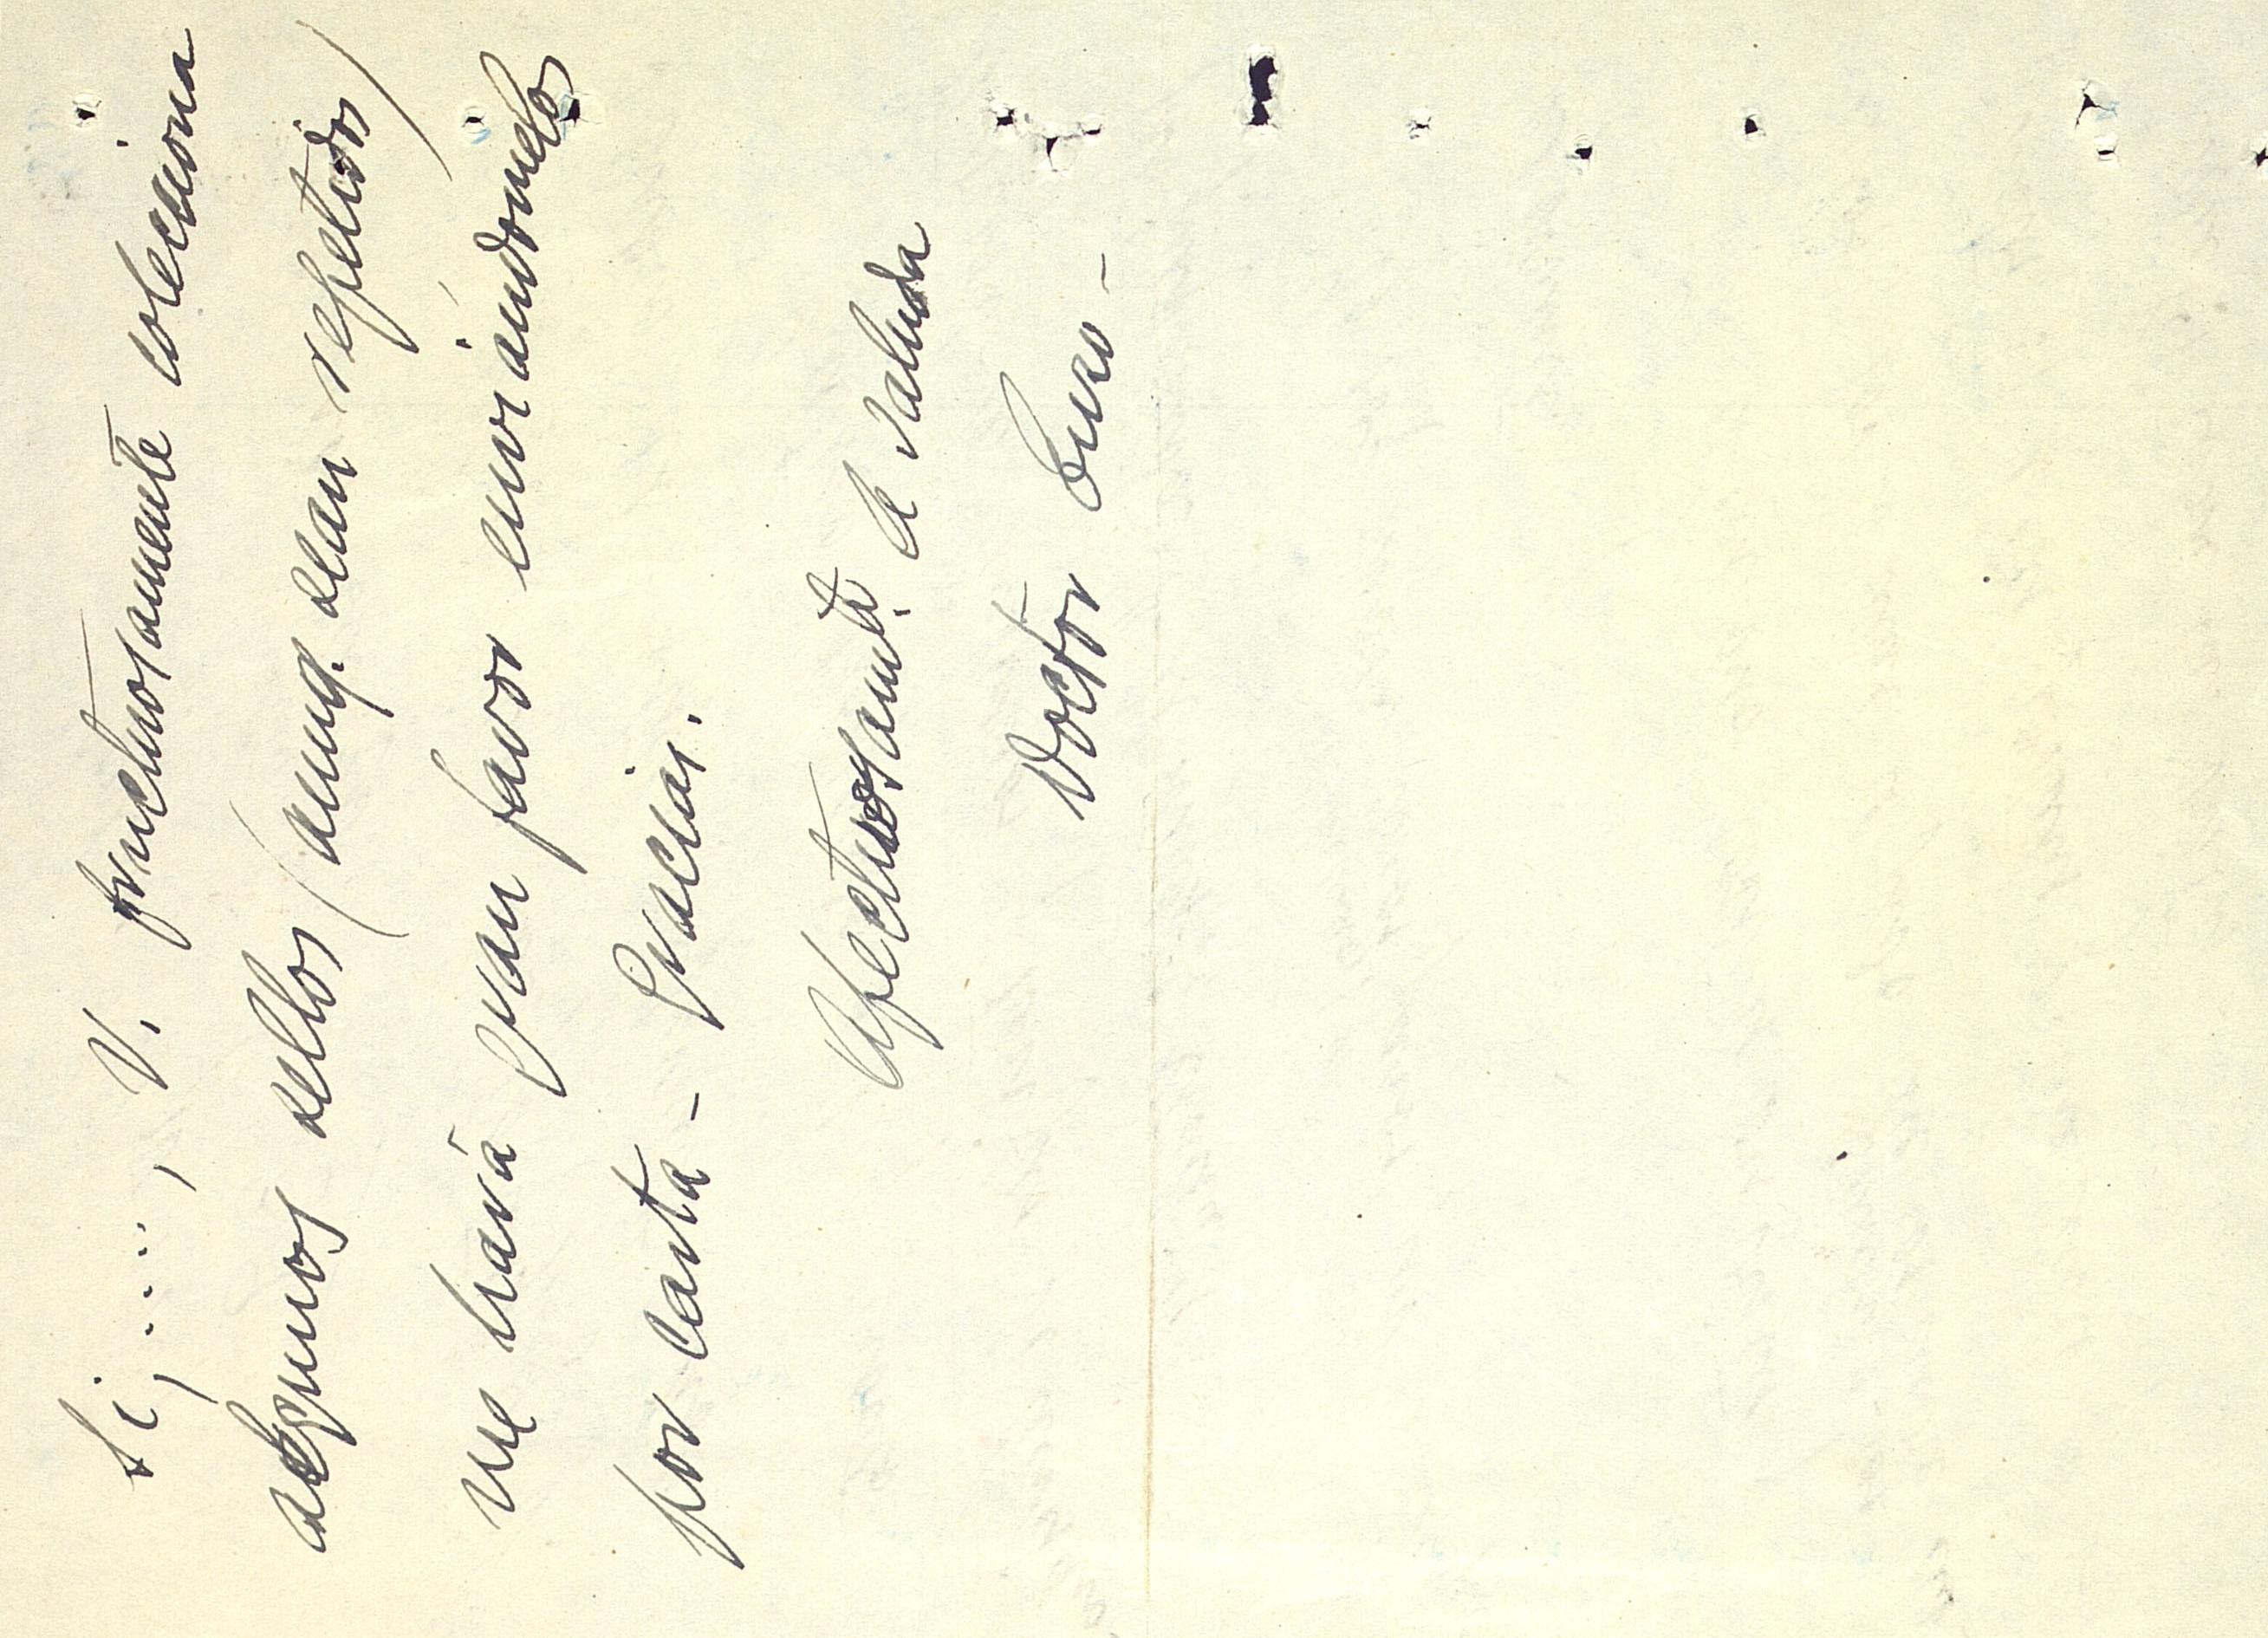 Si, . . . . , V. fructuosamente colecciona
algunos sellos (aunq. sean repetidos)
me hará gran favor enviándomelos
por carta - Gracias.
Afectuosamte. le saluda
Doctor